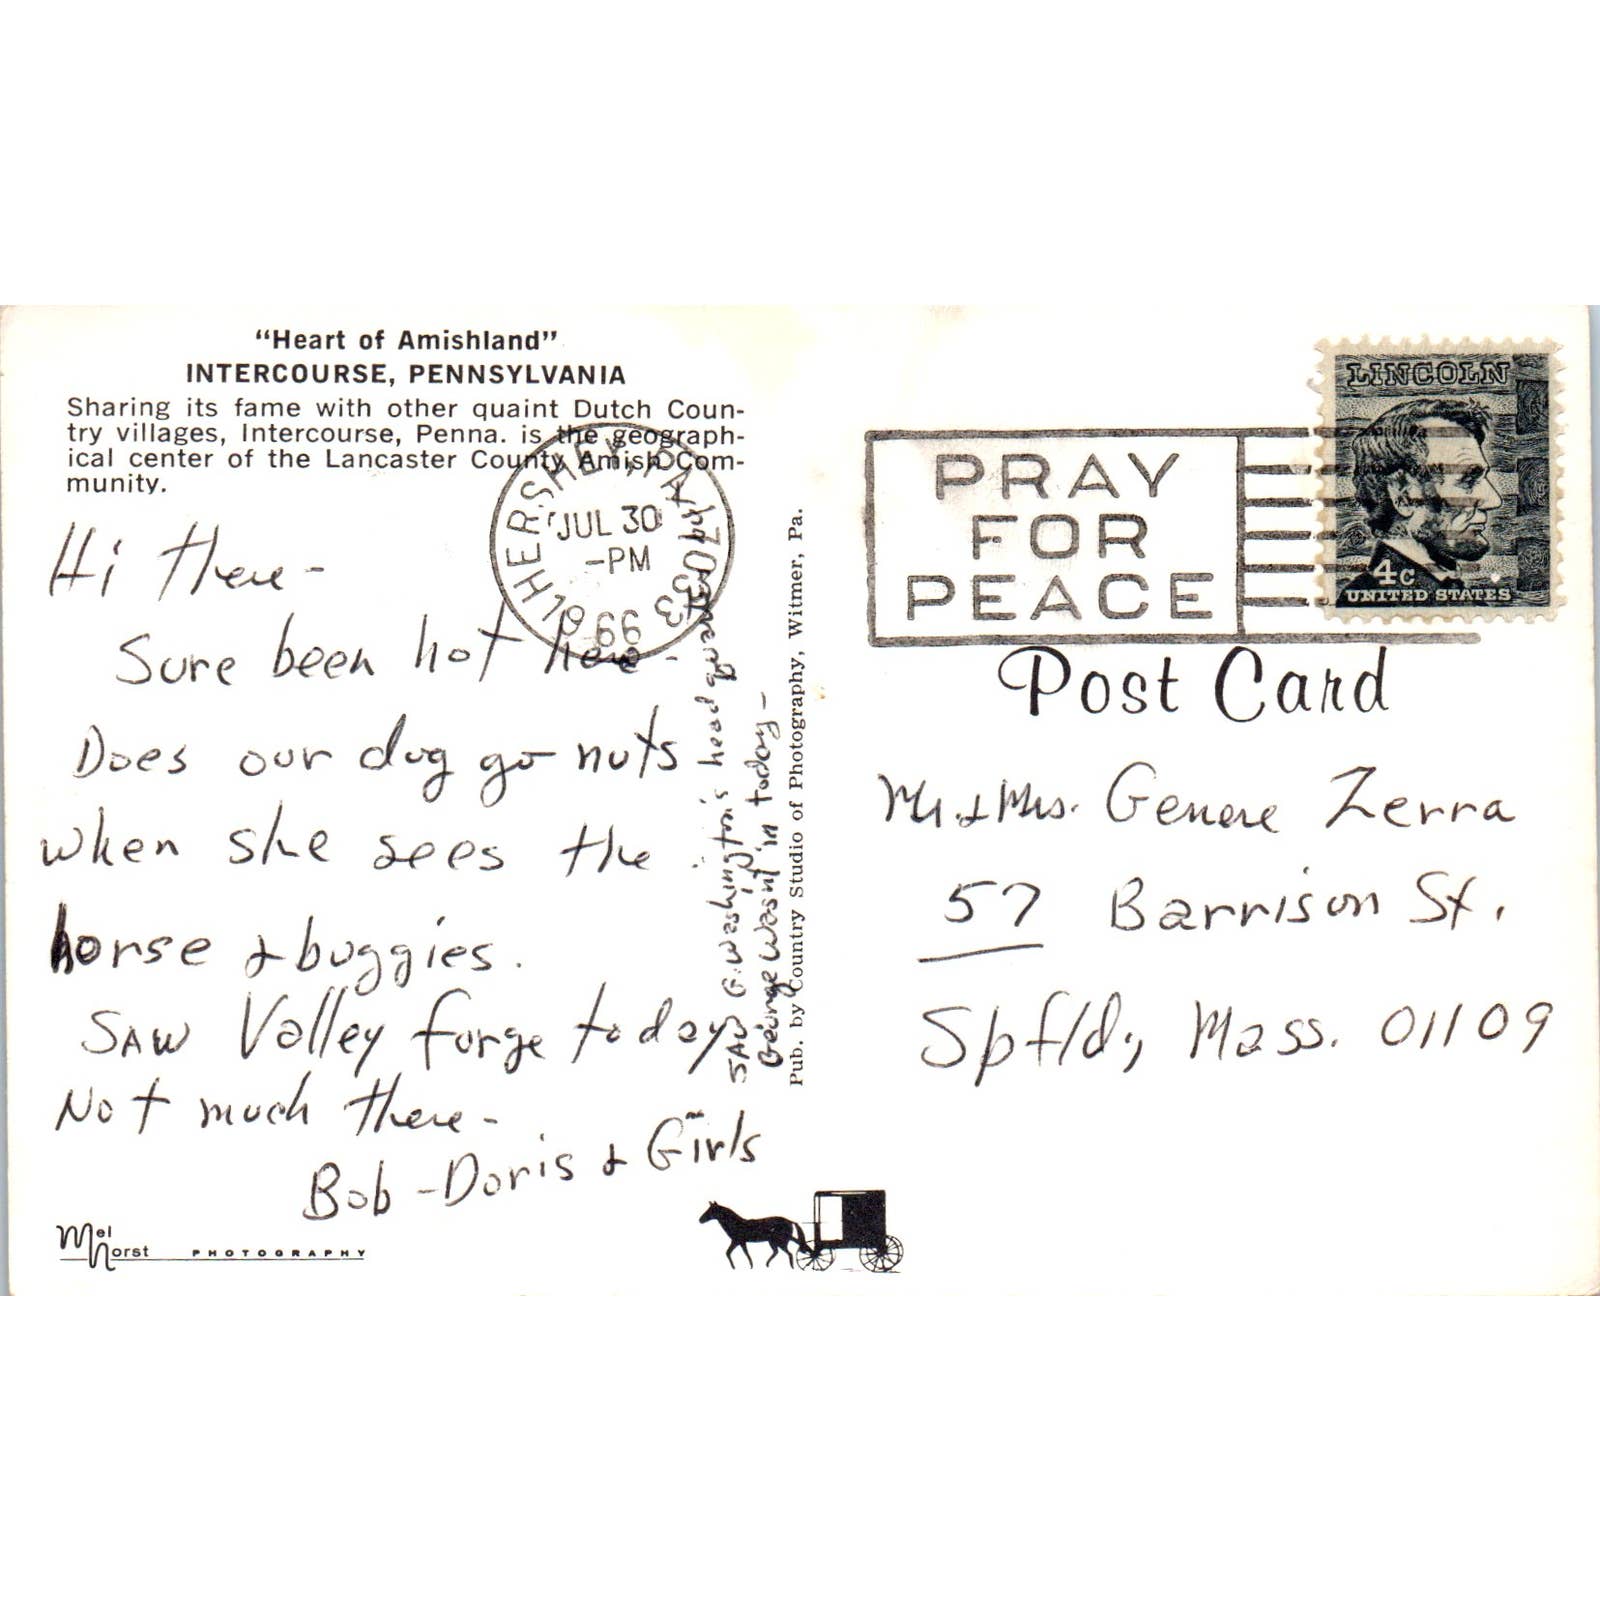 "Heart of Amishland"
INTERCOURSE, PENNSYLVANIA
Sharing its fame with other quaint Dutch Coun-
try villages, Intercourse, Penna. is the geograph-
ical center of the Lancaster County Amish Com-
munity.
HERSHEY, PA 17033
JUL 30
-PM
1966
Hi there-
Sure been hot here-
Does our dog go nuts
when she sees the
horse & buggies.
SAW Valley Forge today
Not much there-
Bob-Doris & Girls
SAW G. Washington's headquarters
George Wasn't in today-
Mel
Horst PHOTOGRAPHY
Pub. by Country Studio of Photography, Witmer, Pa.
PRAY
FOR
PEACE
LINCOLN
4c
UNITED STATES
Post Card
Mr. & Mrs. Genere Zerra
57 Barrison St.
Spfld, Mass. 01109